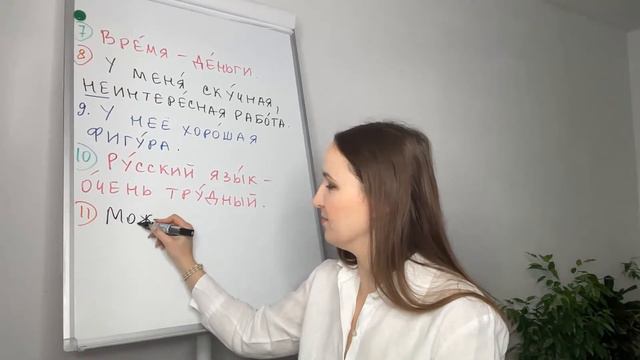 7 Вре́мя – де́ньги.
8 У меня́ ску́чная,
неинтере́сная рабо́та.
9. У неё хоро́шая
фигу́ра.
10 Ру́сский язы́к –
о́чень тру́дный.
11 Мож